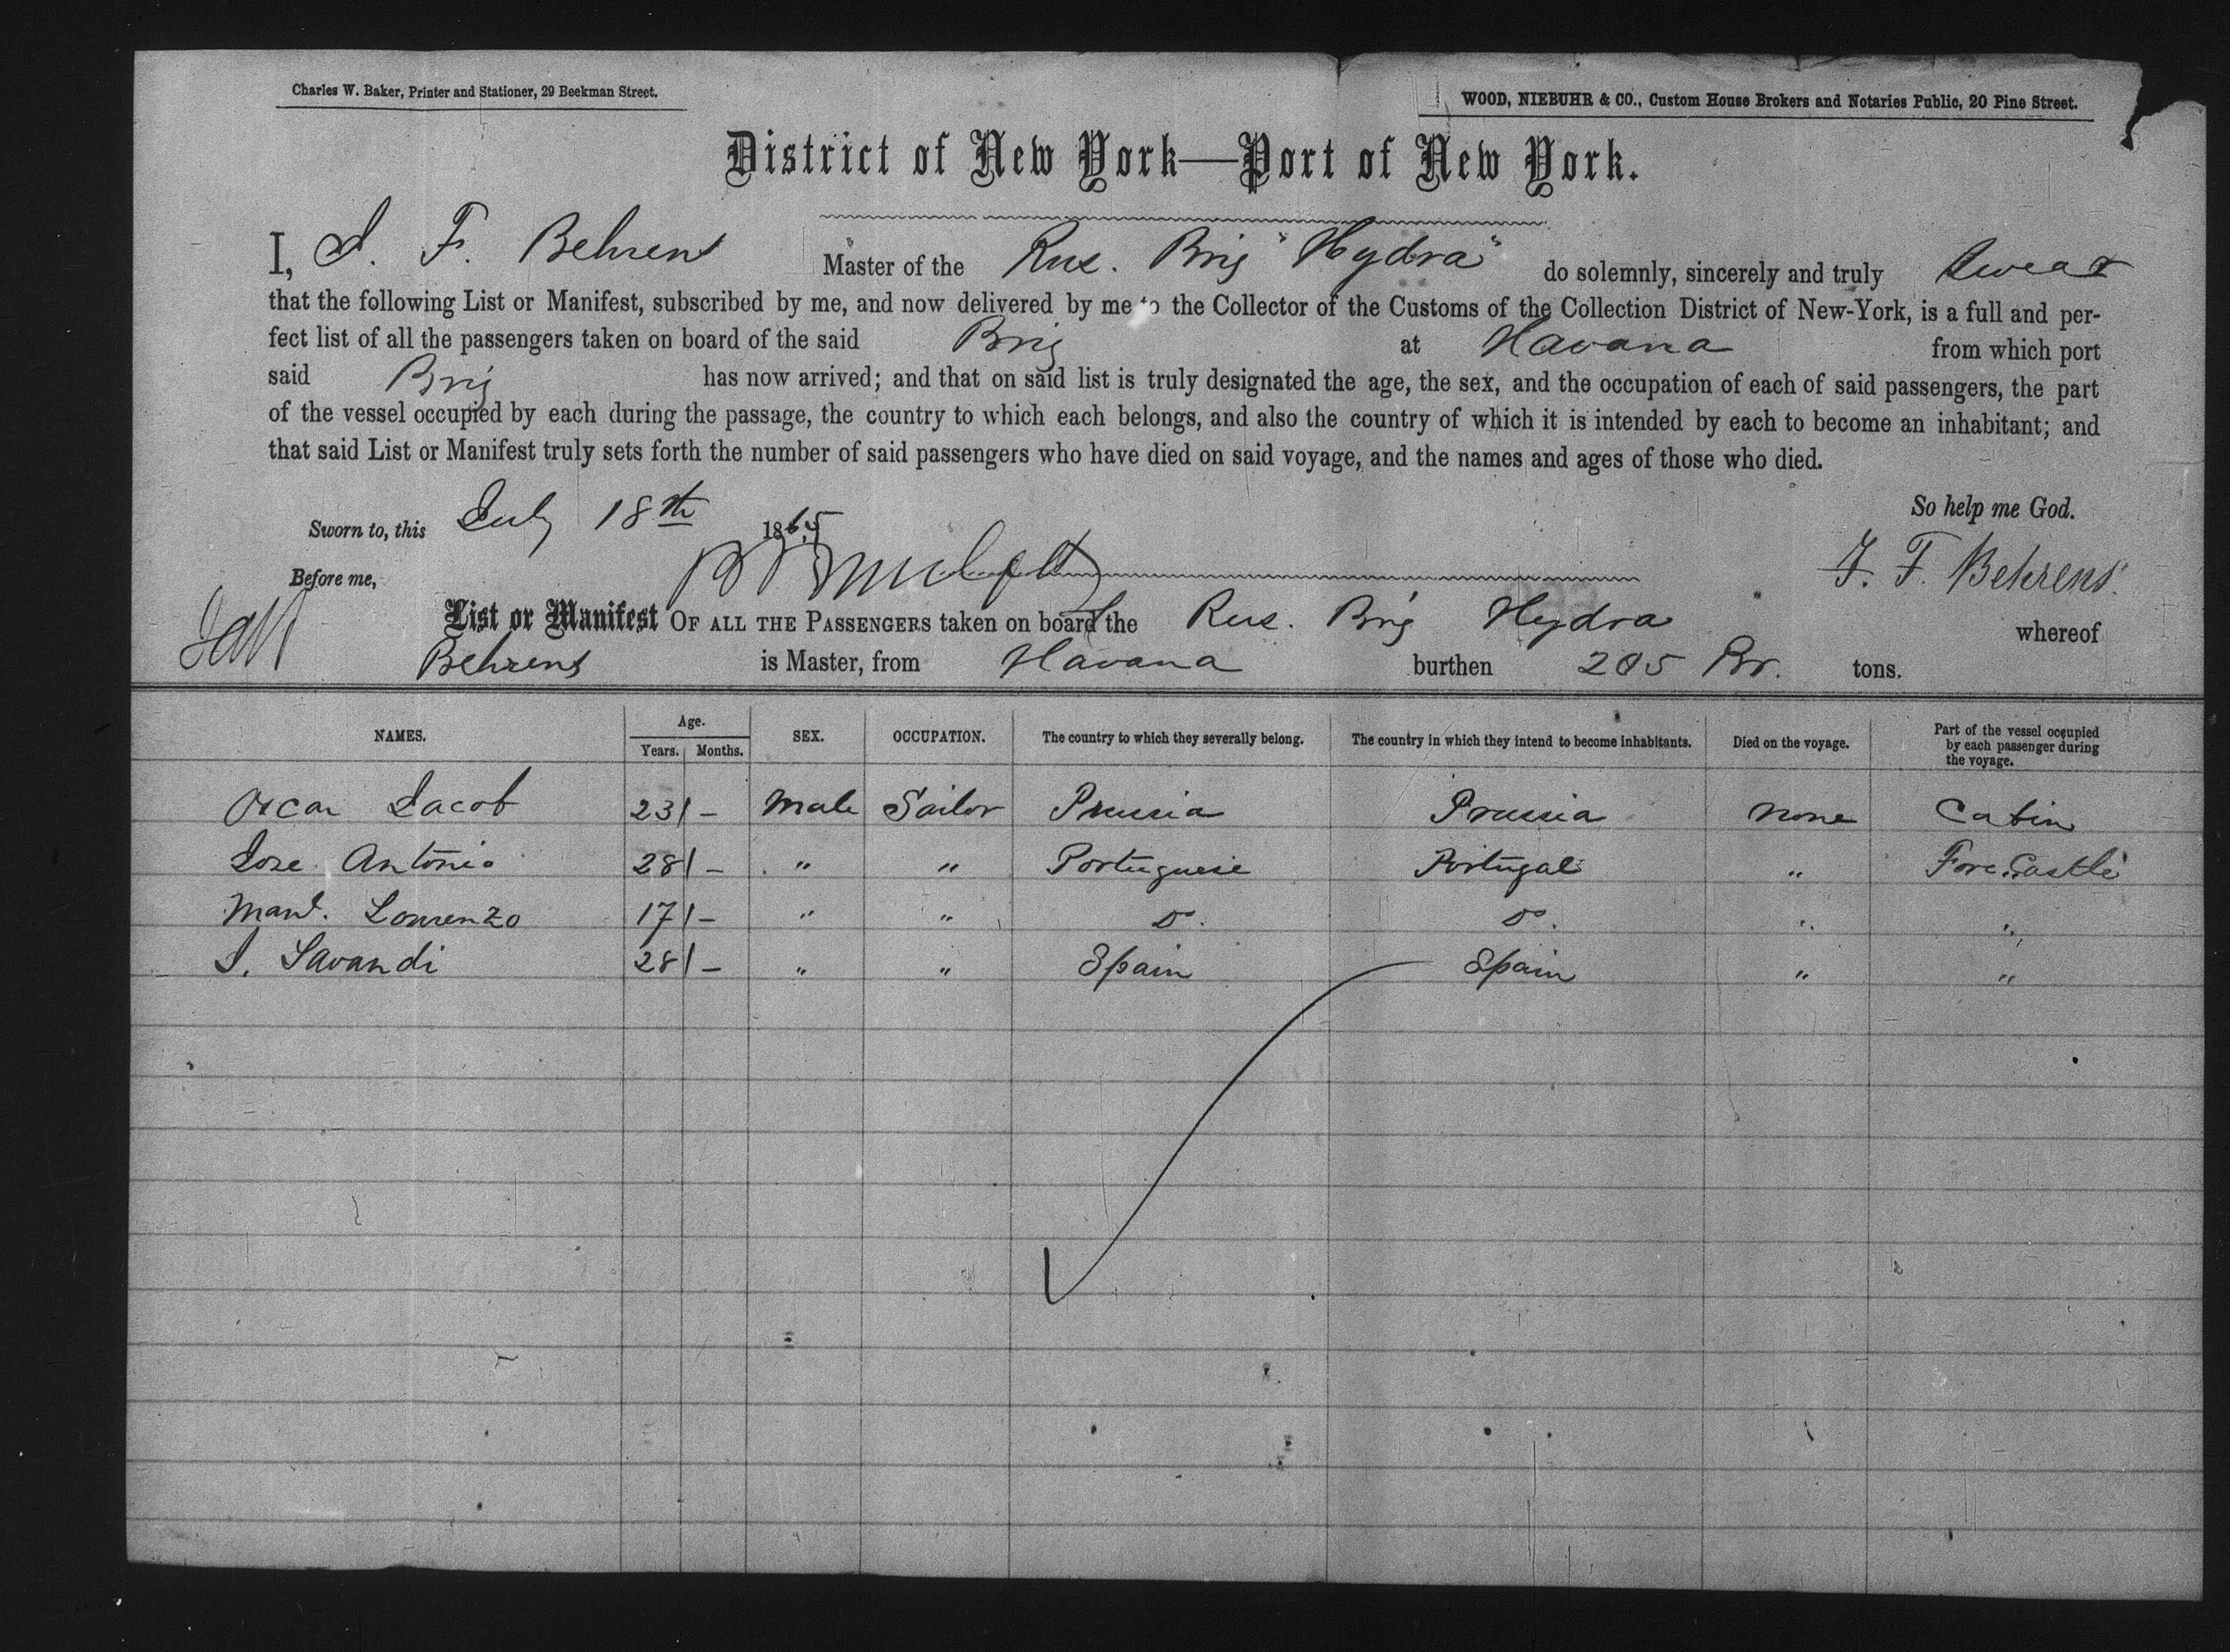 Charles W. Baker, Printer and Stationer, 29 Beekman Street.
WOOD, NIEBUHR & CO., Custom House Brokers and Notaries Public, 20 Pine Street.
District of New York—Port of New York.
I, J. F. Behrens Master of the Rus. Brig "Hydra" do solemnly, sincerely and truly swear
that the following List or Manifest, subscribed by me, and now delivered by me to the Collector of the Customs of the Collection District of New-York, is a full and per-
fect list of all the passengers taken on board of the said Brig at Havana from which port
said Brig has now arrived; and that on said list is truly designated the age, the sex, and the occupation of each of said passengers, the part
of the vessel occupied by each during the passage, the country to which each belongs, and also the country of which it is intended by each to become an inhabitant; and
that said List or Manifest truly sets forth the number of said passengers who have died on said voyage, and the names and ages of those who died.
So help me God.
Sworn to, this July 18th 1865
Before me,
J. F. Behrens.
List or Manifest OF ALL THE PASSENGERS taken on board the Rus. Brig Hydra whereof
Behrens is Master, from Havana burthen 205 Br. tons.
NAMES. Age. Years. Months. SEX. OCCUPATION. The country to which they severally belong. The country in which they intend to become inhabitants. Died on the voyage. Part of the vessel occupied by each passenger during the voyage.
Oscar Jacob 23 - Male Sailor Prussia Prussia none Cabin
Jose Antonio 28 - " " Portuguese Portugal " Fore Castle
Manl. Lourenzo 17 - " " Do. Do. " "
J. Savandi 28 - " " Spain Spain " "